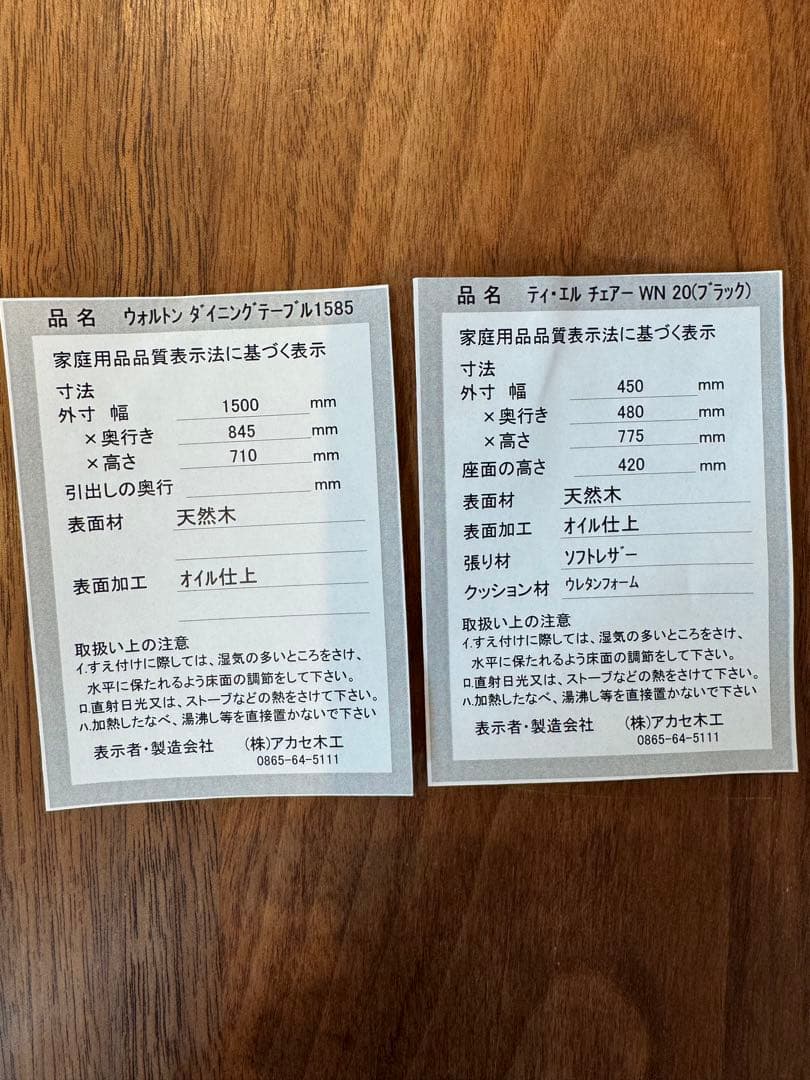 品名 ウォルトン ダイニングテーブル1585
家庭用品品質表示法に基づく表示
寸法
外寸 幅 1500 mm
×奥行き 845 mm
×高さ 710 mm
引出しの奥行 mm
表面材 天然木
表面加工 オイル仕上
取扱い上の注意
イ.すえ付けに際しては、湿気の多いところをさけ、
水平に保たれるよう床面の調節をして下さい。
ロ.直射日光又は、ストーブなどの熱をさけて下さい。
ハ.加熱したなべ、湯沸し等を直接置かないで下さい
表示者・製造会社 (株)アカセ木工
0865-64-5111
品名 ティ・エル チェアー WN 20(ブラック)
家庭用品品質表示法に基づく表示
寸法
外寸 幅 450 mm
×奥行き 480 mm
×高さ 775 mm
座面の高さ 420 mm
表面材 天然木
表面加工 オイル仕上
張り材 ソフトレザー
クッション材 ウレタンフォーム
取扱い上の注意
イ.すえ付けに際しては、湿気の多いところをさけ、
水平に保たれるよう床面の調節をして下さい。
ロ.直射日光又は、ストーブなどの熱をさけて下さい。
ハ.加熱したなべ、湯沸し等を直接置かないで下さい
表示者・製造会社 (株)アカセ木工
0865-64-5111